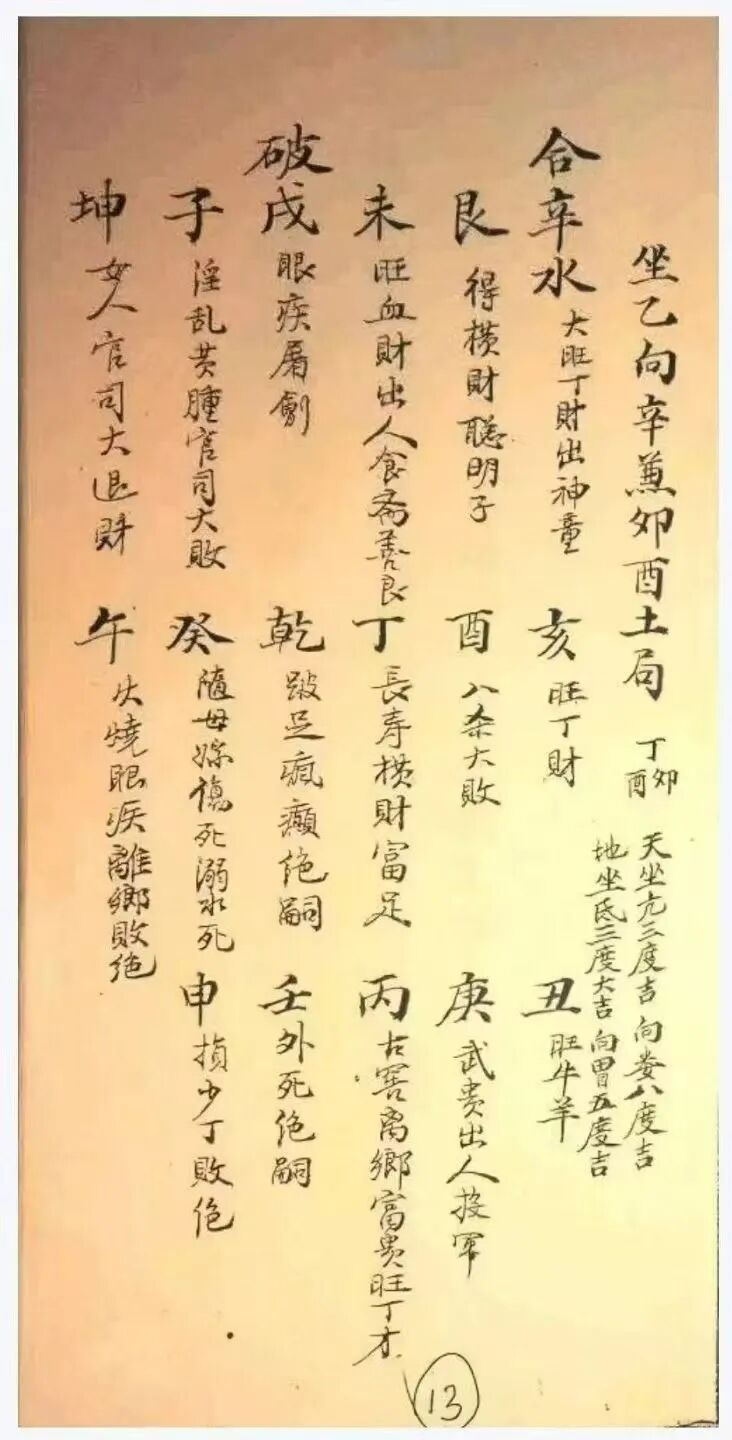 坐乙向辛兼卯酉土局 丁卯 丁酉
天坐亢三度吉 向娄八度吉
地坐氐三度大吉 向胃五度吉
合辛水 大旺丁財出神童 亥 旺丁財 丑 旺牛羊
艮 得横財聪明子 酉 八杀大敗 庚 武贵出人投军
未 旺血財出人食斋善良 丁 長寿横財富足 丙 古窑离鄉富贵旺丁才
破戌 眼疾屠劊 乾 跛足疯癲绝嗣 壬 外死绝嗣
子 淫乱黄腫官司大敗 癸 随母嫁傷死溺水死 申 损少丁敗绝
坤 女人官司大退财 午 火燒眼疾離鄉敗绝
13